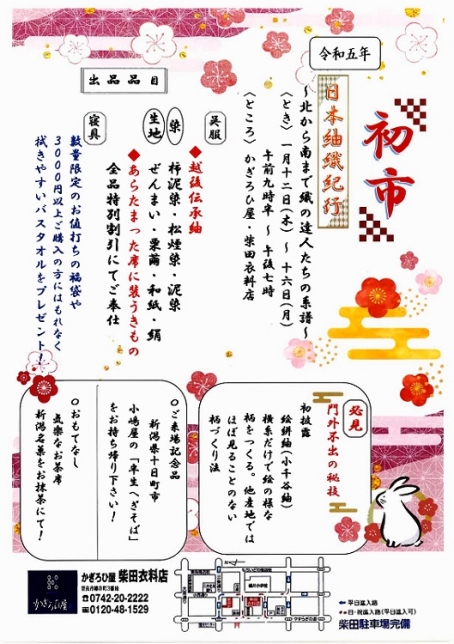 令和五年
初市
日本紬織紀行
～北から南まで織の達人たちの系譜～
〈とき〉一月十二日(木)～十六日(月)
午前九時半～午後七時
〈ところ〉かぎろひ屋・柴田衣料店
出品品目
呉服
◆越後伝承紬
染 生地
柿泥染・松煙染・泥染
ぜんまい・栗繭・和紙・絹
◆あらたまった席に装うきもの
全品特別割引にてご奉仕
寝具
数量限定のお値打ちの福袋や
3000円以上ご購入の方にはもれなく
拭きやすいバスタオルをプレゼント！
必見
門外不出の秘技
初披露
絵絣紬(小千谷紬)
横糸だけで絵の様な
柄をつくる。他産地では
ほぼ見ることのない
柄づくり法
〇ご来場記念品
新潟県十日町市
小嶋屋の「半生へぎそば」
をお持ち帰り下さい！
〇おもてなし
気楽なお茶席
新潟名菓をお抹茶にて！
かぎろひ屋
かぎろひ屋 柴田衣料店
☎0742-20-2222
0120-48-1529
平日進入路
日・祝進入路(平日進入可)
柴田駐車場完備